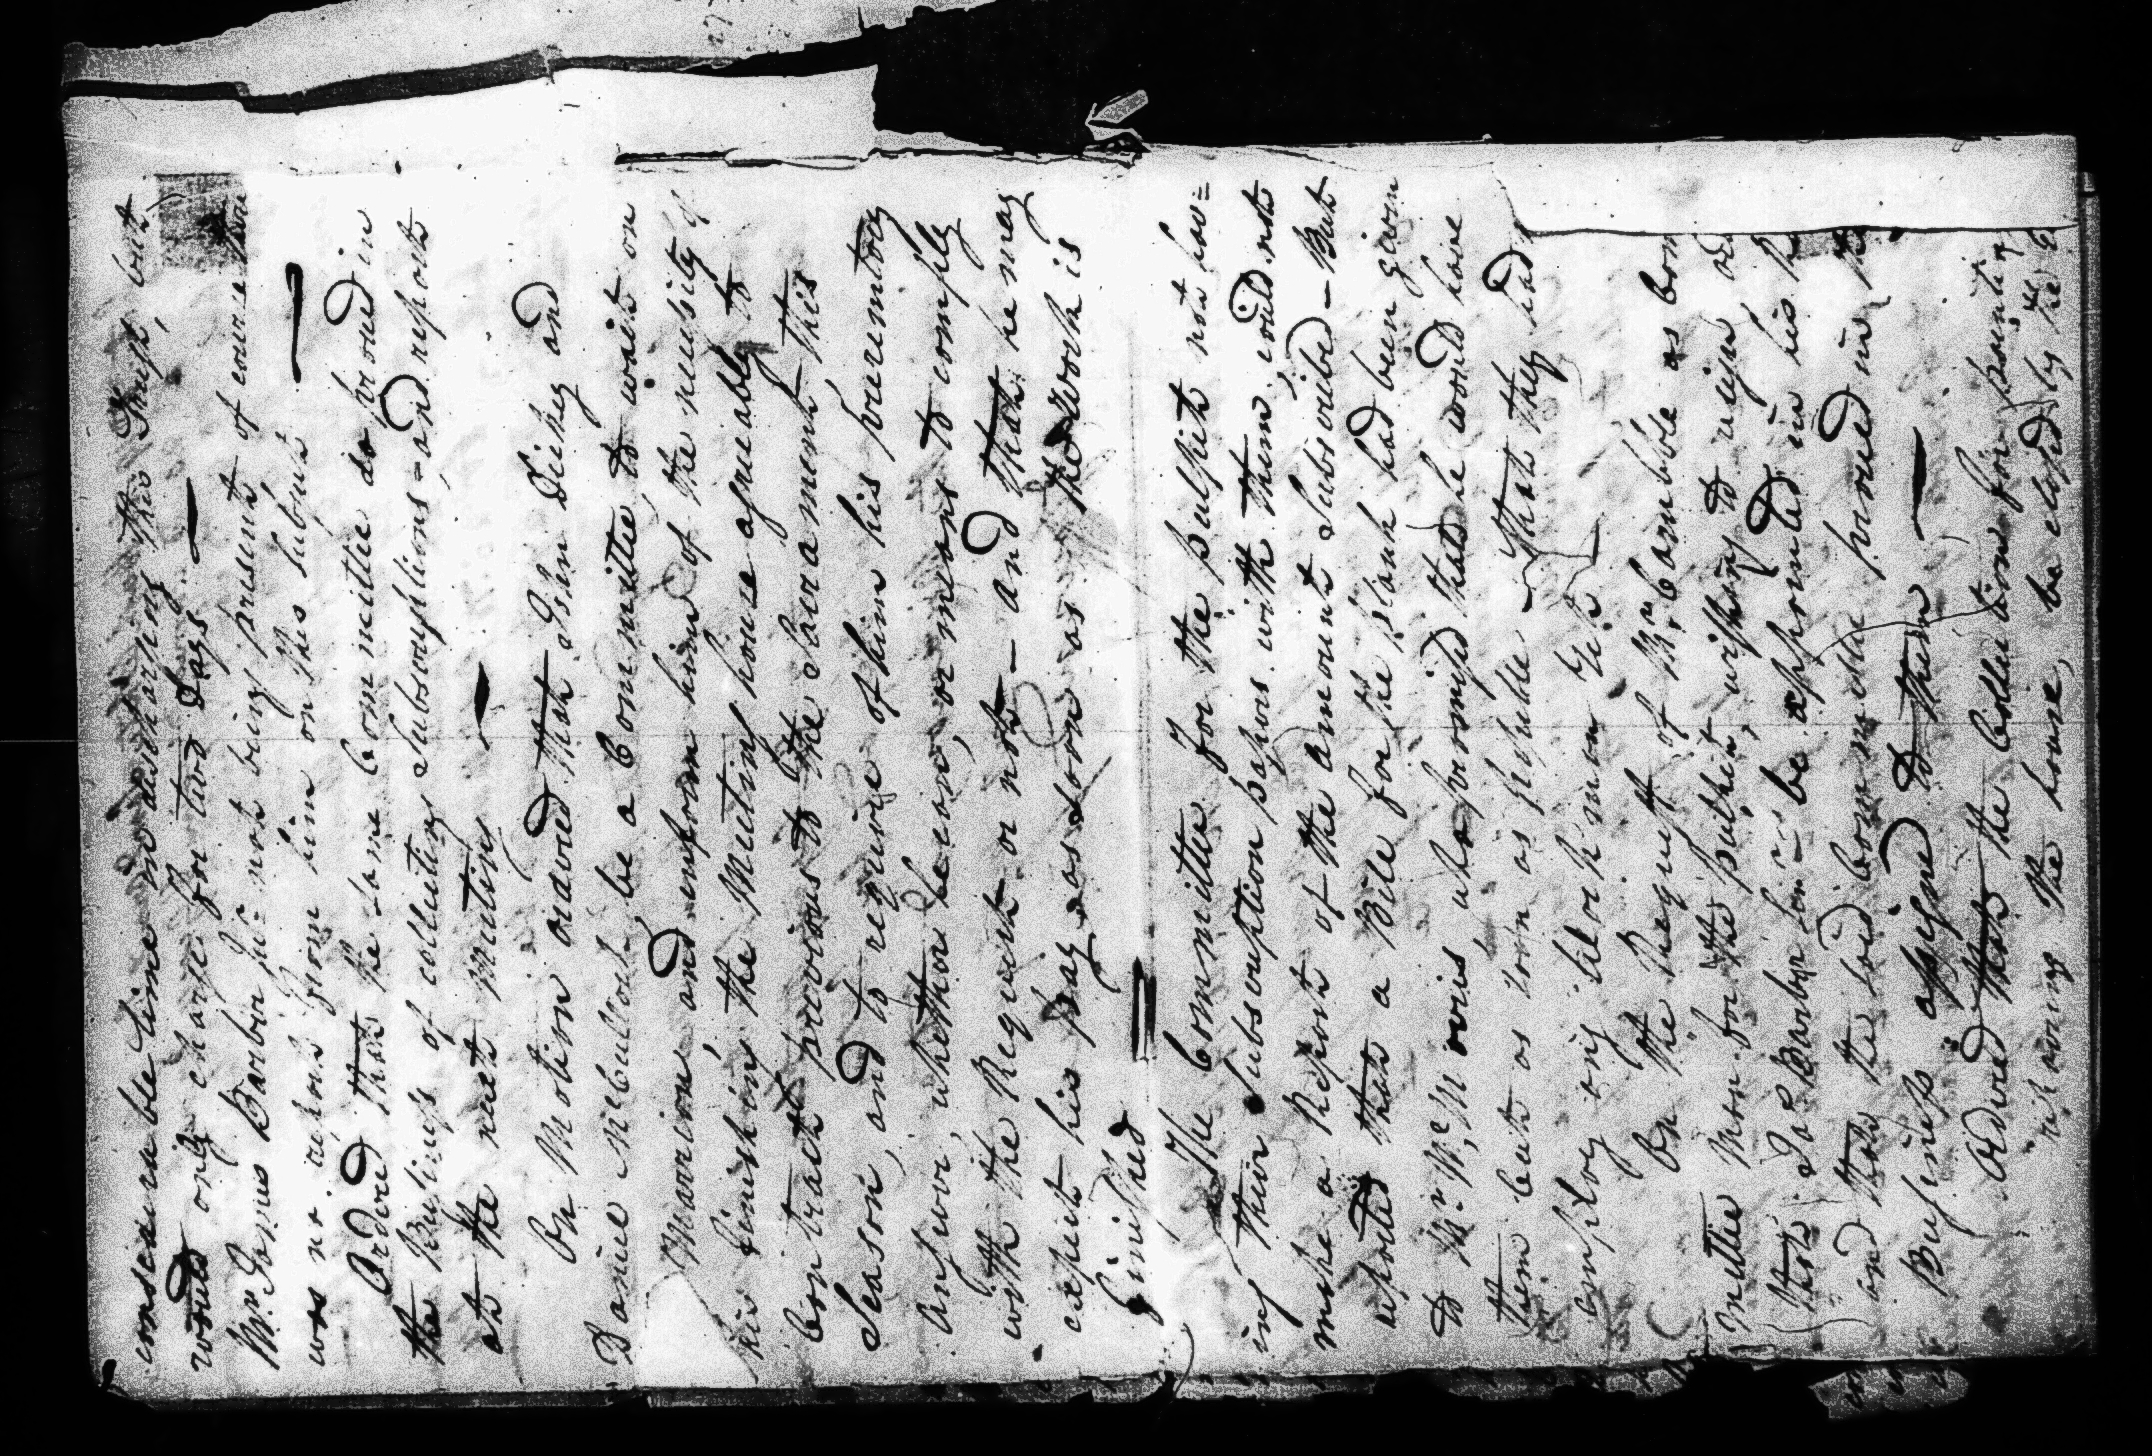 considerable time in discharging this Trust, but
would only charge for two days —
Mr. Jonus Barber Jur. not being present of course there
was no report from him on this Subject —
Ordered that the same Committee do proceed in
the Business of collecting Subscriptions - and report
at the next Meeting —
On Motion ordered that John Dickey and
Daniel McCullock, be a Committee to wait on
Marine and inform him of the necessity of
his finishing the Meeting house agreeably to
Contract previous to the Sacrament this
Season, and to require of him his peremtory
Answer, whether he can, or means to comply
with the Request or not — and that he may
expect his pay as soon as the Work is
finished
The Committee for the pulpit not hav=
ing their Subscription papers with them, could not
make a Report of the amount Subscribed — But
reported that a Bill for the plank had been given
to Mr. McMorris, who promised that he would have
them cut as soon as possible — that they had
employ any Workman Yet.
On the Request of Mr. Bamble as
mittee Man for the pulpit, wishing to resign
that Jos Barber Jur. be appointed in his
and that the said Committee proceed in
Business assign'd to them —
Ordered that the Collection for painting
the house, be closed by the